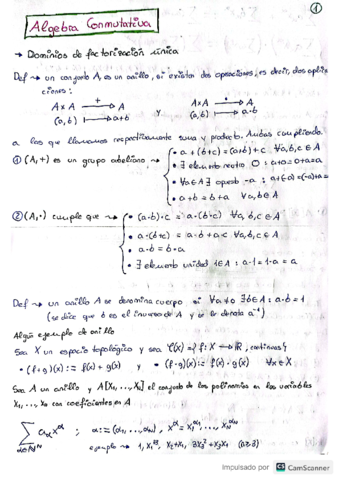 ①
Algebra Conmutativa
→ Dominios de factorización única
Def → un conjunto A, es un anillo, si existen dos operaciones, es decir, dos aplica
ciones:
A × A —+→ A          A × A —·→ A
(a,b) ↦ a+b     y     (a,b) ↦ a·b
a las que llamamos respectivamente suma y producto. Ambas cumpliendo:
① (A,+) es un grupo abeliano → • a+(b+c) = (a+b)+c ∀a,b,c ∈ A
• ∃ elemento neutro 0 : a+0=0+a=a
• ∀a∈A ∃ opuesto -a : a+(-a)=(-a)+a=
• a+b = b+a ∀a,b ∈ A
② (A,·) cumple que → • (a·b)·c = a·(b·c) ∀a,b,c ∈ A
• a·(b+c) = a·b + a·c ∀a,b,c ∈ A
• a·b = b·a
• ∃ elemento unidad 1∈A : a·1 = 1·a = a
Def → un anillo A se denomina cuerpo si ∀a≠0 ∃b∈A : a·b = 1
(se dice que b es el inverso de A y se le denota a⁻¹)
Algún ejemplo de anillo
Sea X un espacio topológico y sea C(X) = { f: X → ℝ, continuas }
• (f+g)(x) := f(x) + g(x) y • (f·g)(x) := f(x)·g(x) ∀x ∈ X
Sea A un anillo y A[X₁, ..., Xₙ] el conjunto de los polinomios en las variables
X₁, ..., Xₙ con coeficientes en A
∑ aα x^α ; α := (α₁, ..., αₙ), x^α = x₁^α₁, ..., xₙ^αₙ
α∈ℕᴺ
ejemplo →
Impulsado por CS CamScanner